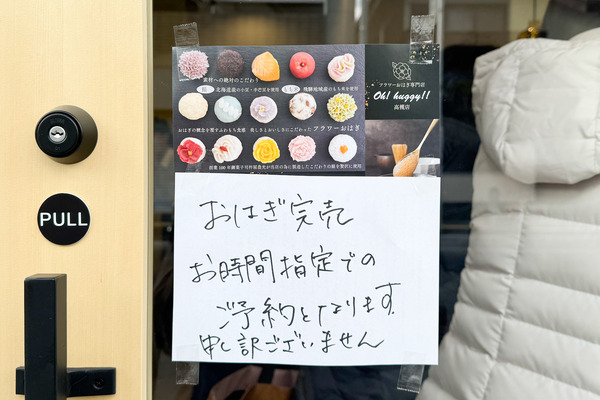 素材への絶対のこだわり
北海道産の小豆・小芒豆を使用
飛騨地域産のもち米を使用
おはぎの概念を覆すふわもち食感 美しさとおいしさにこだわったフラワーおはぎ
フラワーおはぎ専門店
Oh! huggy!!
高槻店
PULL
おはぎ完売
お時間指定での
ご予約となります.
申し訳ございません